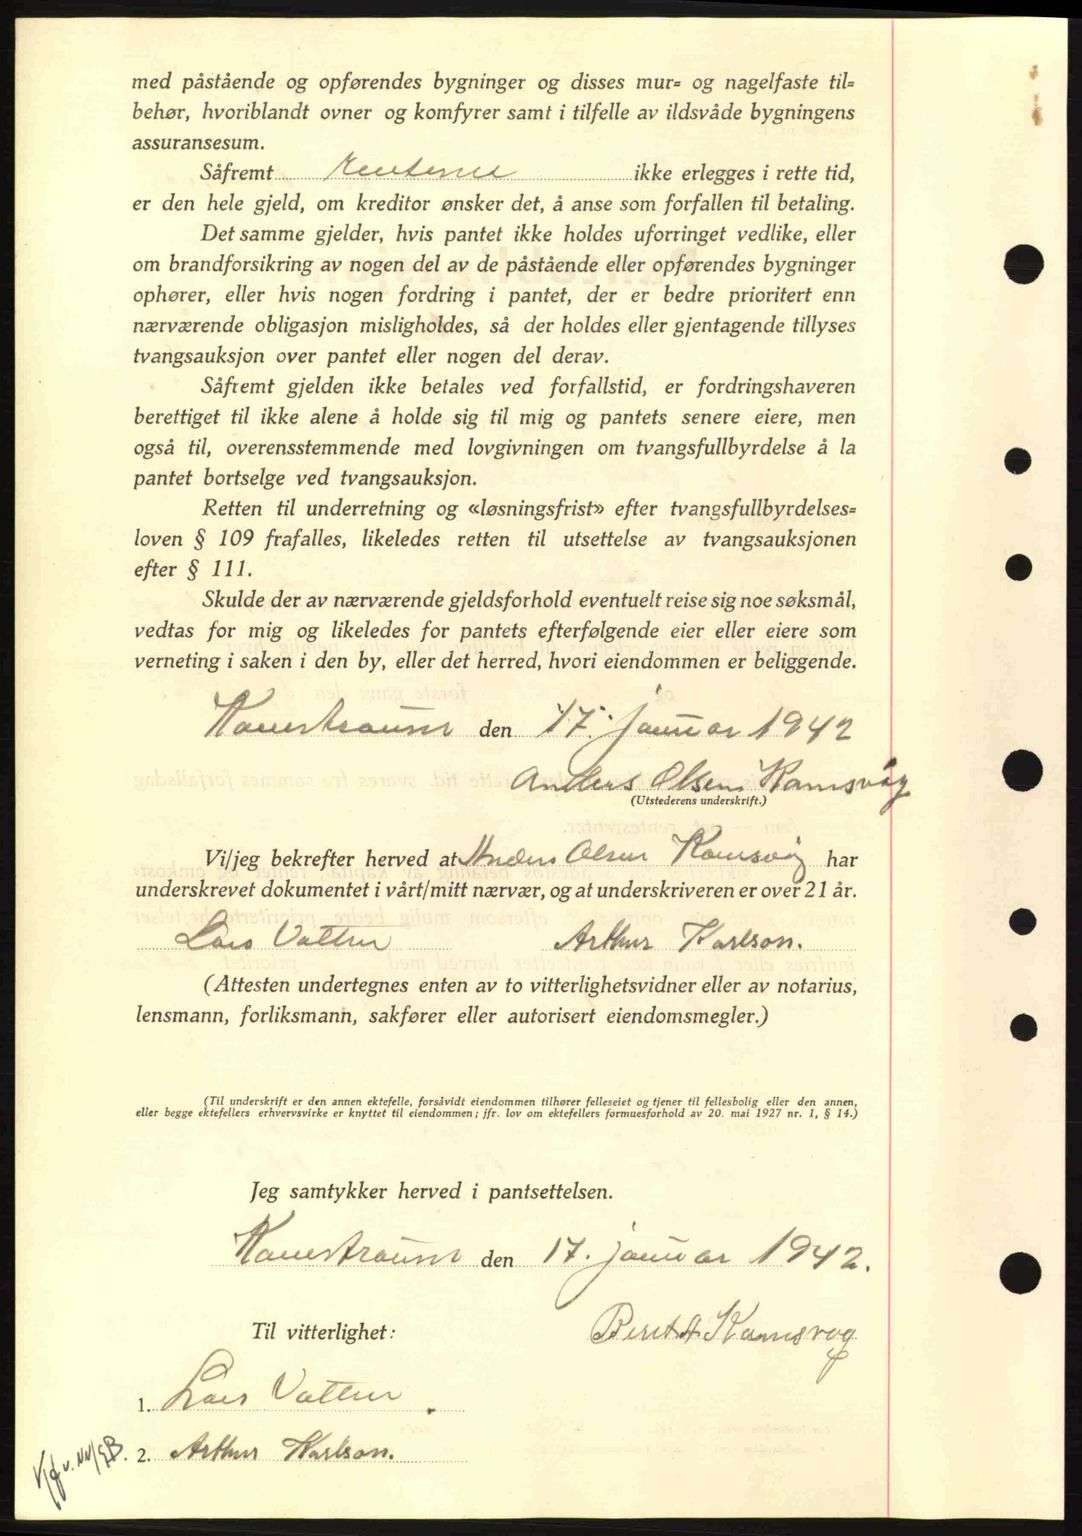 med påstående og opførendes bygninger og disses mur= og nagelfaste til=
behør, hvoriblandt ovner og komfyrer samt i tilfelle av ildsvåde bygningens
assuransesum.
Såfremt renterne ikke erlegges i rette tid,
er den hele gjeld, om kreditor ønsker det, å anse som forfallen til betaling.
Det samme gjelder, hvis pantet ikke holdes uforringet vedlike, eller
om brandforsikring av nogen del av de påstående eller opførendes bygninger
ophører, eller hvis nogen fordring i pantet, der er bedre prioritert enn
nærværende obligasjon misligholdes, så der holdes eller gjentagende tillyses
tvangsauksjon over pantet eller nogen del derav.
Såfremt gjelden ikke betales ved forfallstid, er fordringshaveren
berettiget til ikke alene å holde sig til mig og pantets senere eiere, men
også til, overensstemmende med lovgivningen om tvangsfullbyrdelse å la
pantet bortselge ved tvangsauksjon.
Retten til underretning og «løsningsfrist» efter tvangsfullbyrdelses=
loven § 109 frafalles, likeledes retten til utsettelse av tvangsauksjonen
efter § 111.
Skulde der av nærværende gjeldsforhold eventuelt reise sig noe søksmål,
vedtas for mig og likeledes for pantets efterfølgende eier eller eiere som
verneting i saken i den by, eller det herred, hvori eiendommen er beliggende.
Kanestraum den 17. januar 1942
Anders Olsen Ramsvåg
(Utstederens underskrift.)
Vi/jeg bekrefter herved at Anders Olsen Ramsvåg har
underskrevet dokumentet i vårt/mitt nærvær, og at underskriveren er over 21 år.
Lars Vatten Arthur Karlson.
(Attesten undertegnes enten av to vitterlighetsvidner eller av notarius,
lensmann, forliksmann, sakfører eller autorisert eiendomsmegler.)
(Til underskrift er den annen ektefelle, forsåvidt eiendommen tilhører felleseiet og tjener til fellesbolig eller den annen,
eller begge ektefellers erhvervsvirke er knyttet til eiendommen; jfr. lov om ektefellers formuesforhold av 20. mai 1927 nr. 1, § 14.)
Jeg samtykker herved i pantsettelsen.
Kanestraum den 17. januar 1942.
Til vitterlighet: Berit A Ramsvåg
1. Lars Vatten
2. Arthur Karlson.